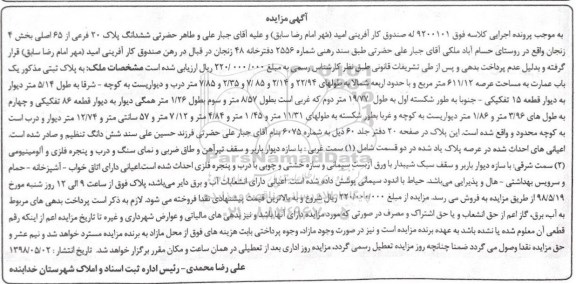 آگهی مزایده
به موجب پرونده اجرایی کلاسه فوق 9200101 له صندوق کار آفرینی امید (مهر امام رضا سابق) و علیه آقای جبار علی و طاهر حضرتی ششدانگ پلاک 20 فرعی از 65 اصلی بخش 4
زنجان واقع در روستای حسام آباد ملکی آقای جبار علی حضرتی طبق سند رهنی شماره 2556 دفترخانه 48 زنجان در قبال در رهن صندوق کار آفرینی امید (مهر امام رضا سابق) قرار
گرفته و بدلیل عدم پرداخت بدهی و پس از طی تشریفات قانونی طبق نظر کارشناس رسمی به مبلغ 220/000/000 ریال ارزیابی شده است مشخصات ملک: به پلاک ثبتی مذکور یک
باب عمارت به مساحت عرصه پلاک 611/12 متر مربع و با حدود اربعه شمالا به طولهای 22/94 و 2/14 و 7/85 و 2/35 و 7/85 متر درب و دیواریست به کوچه - شرقا به طول 5/14 متر دیوار
به دیوار قطعه 15 تفکیکی - جنوبا به طور شکسته اول به طول 19/77 متر دوم که غربی است بطول 8/57 متر و سوم بطول 1/26 متر همگی دیوار به دیوار قطعه 86 تفکیکی و چهارم
به طول های 3/96 متر و 1/86 متر دیواریست به کوچه و غربا بطور شکسته به طولهای 11/31 متر و 1/45 متر و 3/84 متر و 7/12 متر و 57 سانتی متر و 12/74 متر دیوار و درب است
به کوچه محدود و واقع شده است. این پلاک در صفحه 20 دفتر جلد 60 ذیل به شماره 6075 بنام آقای جبار علی حضرتی فرزند حسین علی سند شش دانگ تنظیم و صادر شده است.
اعیانی های احداث شده در عرصه پلاک یاد شده در دو قسمت شامل (1) سمت غربی: با سازه دیوار باربر و سقف تیرآهن و طاق ضربی و نمای سنگ و درب و پنجره فلزی و آلومینیومی
(2) سمت شرقی: با سازه دیوار باربر و سقف سبک شیبدار با ورق ایرانیت و نمای سیمانی وسازه خشتی و چوبی با درب و پنجره فلزی احداث شده است اعیانی دارای اتاق خواب - آشپزخانه - حمام
و سرویس بهداشتی - هال و پذیرایی می‌باشد. حیاط با اندود سیمانی پوشش داده شده است. اعیانی دارای انشعابات آب و برق دایر می‌باشد پلاک فوق از ساعت 9 الی 12 روز شنبه مورخ
98/5/19 از طریق مزایده به فروش می رسد. مزایده از مبلغ 220/000/000 ریال شروع و به بالاترین قیمت پیشنهادی نقدا فروخته می شود. لازم به ذکر است پرداخت بدهی های مربوط
به آب، برق، گاز اعم از حق انشعاب و یا حق اشتراک و مصرف در صورتی که مورد مزایده دارای آنها باشد و نیز بدهی های مالیاتی و عوارض شهرداری و غیره تا تاریخ مزایده اعم از اینکه رقم
قطعی آن معلوم شده یا نشده باشد به عهده برنده مزایده است و نیز در صورت وجود مازاد، وجوه پرداختی بابت هزینه های فوق از محل مازاد به برنده مزایده مسترد خواهد شد و نیم عشر و
حق مزایده نقدا وصول می گردد ضمنا چنانچه روز مزایده تعطیل رسمی گردد، مزایده روز اداری بعد از تعطیلی در همان ساعت و مکان مقرر برگزار خواهد شد. تاریخ انتشار: 1398/05/02
علی رضا محمدی- رئیس اداره ثبت اسناد و املاک شهرستان خدابنده